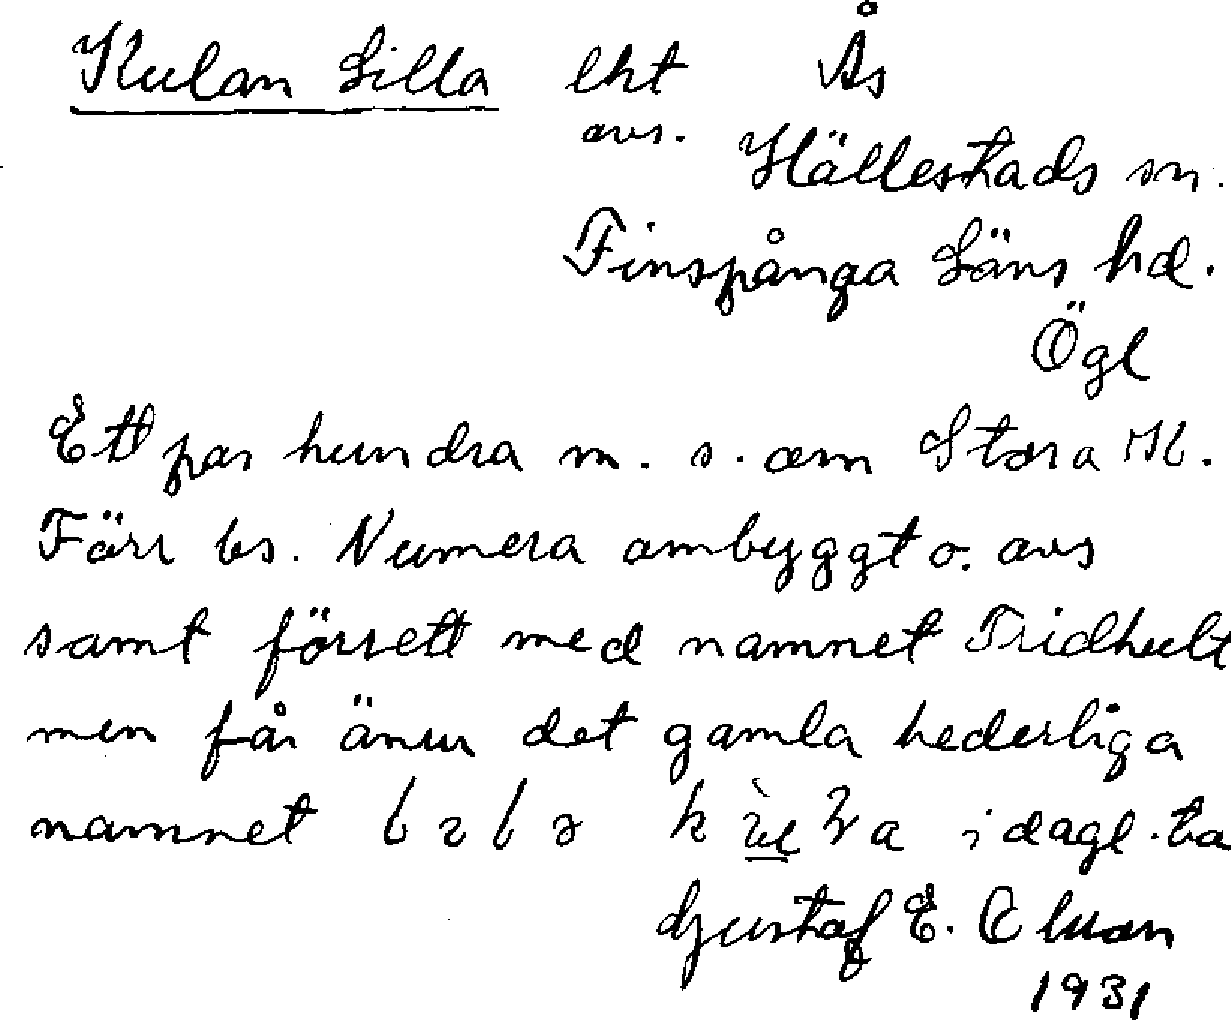 Kulan Lilla lht Ås
avs. Hällestads sn.
Finspånga Läns hd.
Ögl
Ett par hundra m. s. om Stora K.
Förr bs. Numera ombyggt o. avs
samt försett med namnet Fridhult
men får ännu det gamla hederliga
namnet i dagl. ta
Gustaf E.
1931